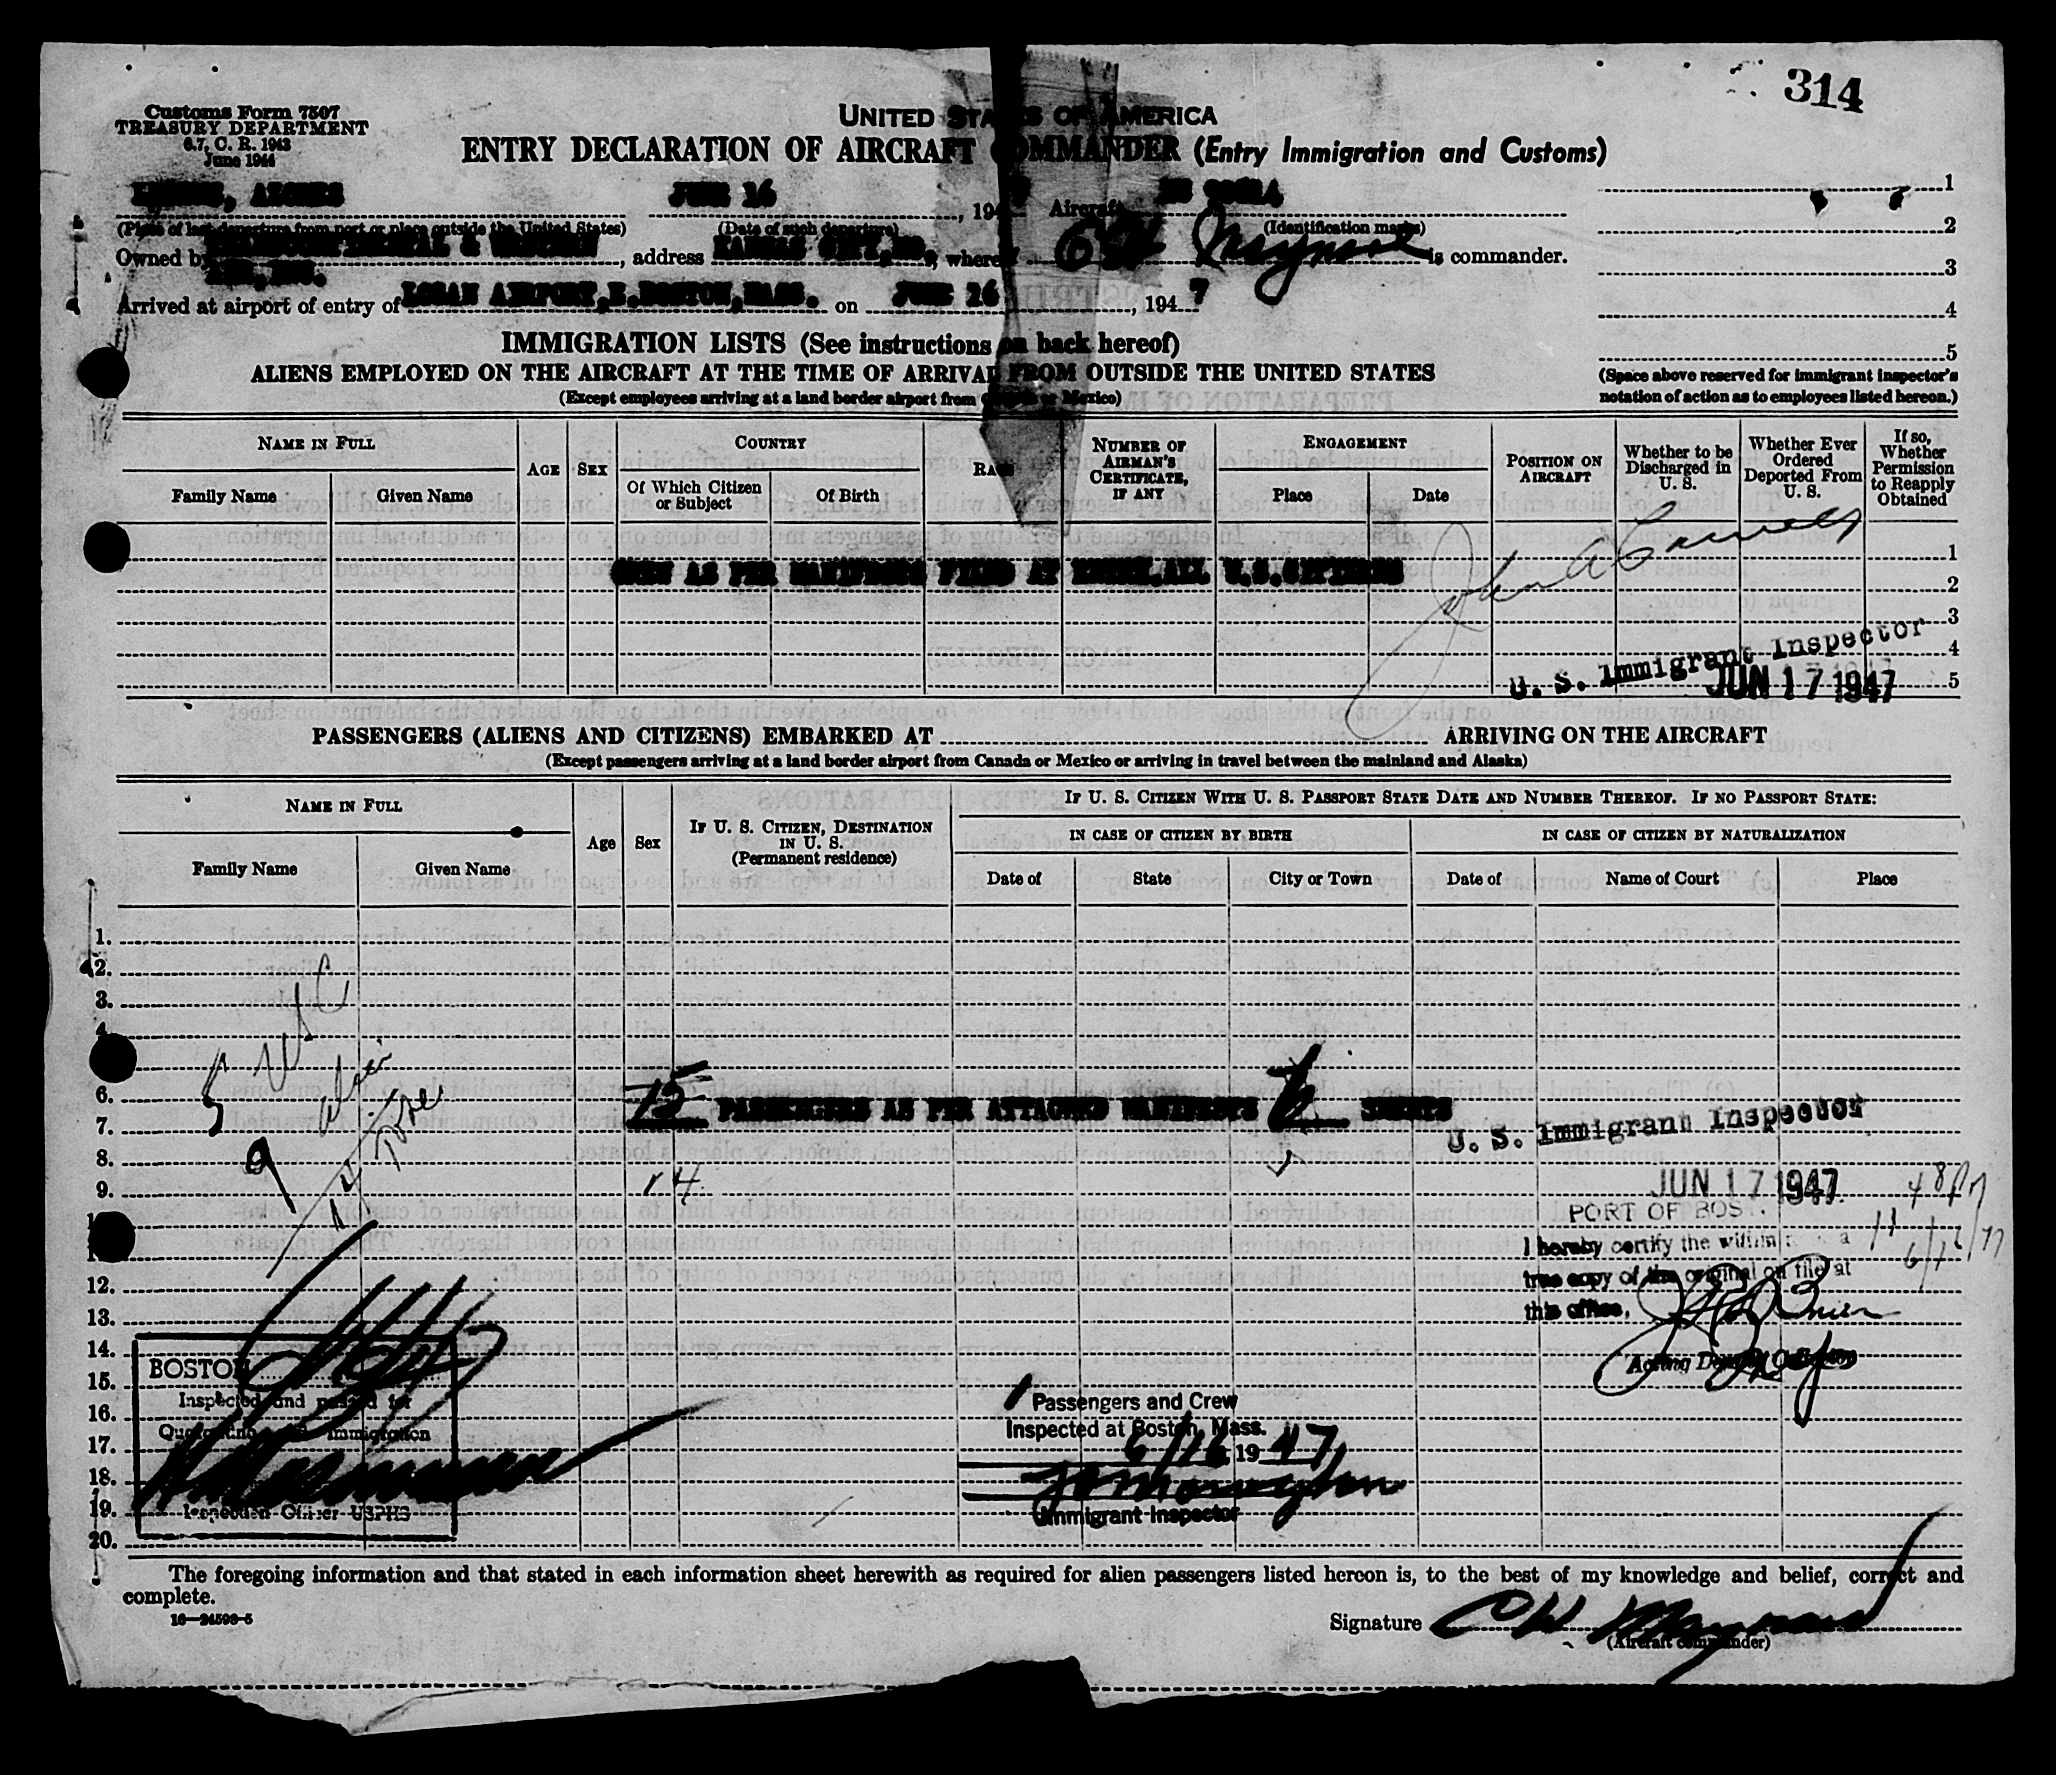 314
Customs Form 7507
TREASURY DEPARTMENT
6.7, C. R. 1943
June 1944
UNITED STATES OF AMERICA
ENTRY DECLARATION OF AIRCRAFT COMMANDER (Entry Immigration and Customs)
JUNE 16, 194 Aircraft
(Place of last departure from port or place outside the United States) (Date of such departure) (Identification marks)
Owned by & WESTERN, address KANSAS CITY, MO, where is commander.
AIR, INC.
Arrived at airport of entry of LOGAN AIRPORT, E. BOSTON, MASS. on JUNE 16, 1947
1
2
3
4
5
(Space above reserved for immigrant inspector's notation of action as to employees listed hereon.)
IMMIGRATION LISTS (See instructions on back hereof)
ALIENS EMPLOYED ON THE AIRCRAFT AT THE TIME OF ARRIVAL FROM OUTSIDE THE UNITED STATES
(Except employees arriving at a land border airport from Canada or Mexico)
NAME IN FULL
Family Name
Given Name
AGE
SEX
COUNTRY
Of Which Citizen or Subject
Of Birth
RACE
NUMBER OF AIRMAN'S CERTIFICATE, IF ANY
ENGAGEMENT
Place
Date
POSITION ON AIRCRAFT
Whether to be Discharged in U. S.
Whether Ever Ordered Deported From U. S.
If so, Whether Permission to Reapply Obtained
1
CREW AS PER MANIFESTS FILED AT ALL U.S. CITIZENS
2
3
4
5
U. S. Immigrant Inspector
JUN 17 1947
PASSENGERS (ALIENS AND CITIZENS) EMBARKED AT ARRIVING ON THE AIRCRAFT
(Except passengers arriving at a land border airport from Canada or Mexico or arriving in travel between the mainland and Alaska)
NAME IN FULL
Family Name
Given Name
Age
Sex
IF U. S. CITIZEN, DESTINATION IN U. S.
(Permanent residence)
IF U. S. CITIZEN WITH U. S. PASSPORT STATE DATE AND NUMBER THEREOF. IF NO PASSPORT STATE:
IN CASE OF CITIZEN BY BIRTH
IN CASE OF CITIZEN BY NATURALIZATION
Date of
State
City or Town
Date of
Name of Court
Place
1.
2.
3.
4.
5 USC
9 alien
14
6.
15 PASSENGERS AS PER ATTACHED MANIFESTS 6 SHEETS
7.
U. S. Immigrant Inspector
8.
9.
14
JUN 17 1947
PORT OF BOS
I hereby certify the within
true copy of the original on file at
this office,
12.
13.
14.
15.
16.
17.
18.
19.
20.
BOSTON
Inspected and passed for
Immigration
Inspection Officer USPHS
Passengers and Crew
Inspected at Boston, Mass.
6/16 1947
Immigrant Inspector
The foregoing information and that stated in each information sheet herewith as required for alien passengers listed hereon is, to the best of my knowledge and belief, correct and
complete.
16—24590-5
Signature
(Aircraft commander)